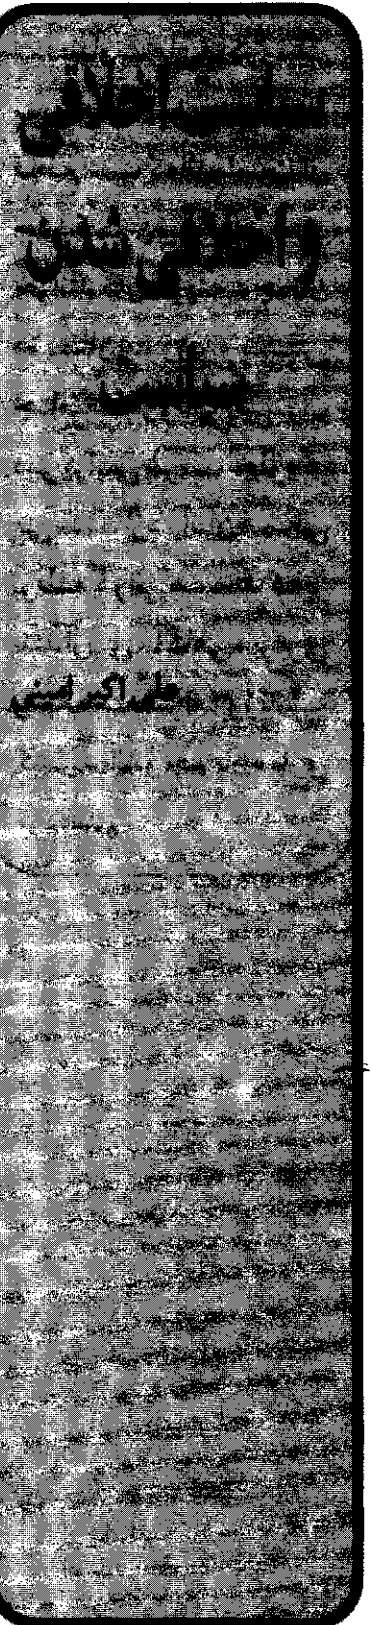 سیاست اخلاقی
و اخلاقی شدن
سیاست
علی اکبر امینی